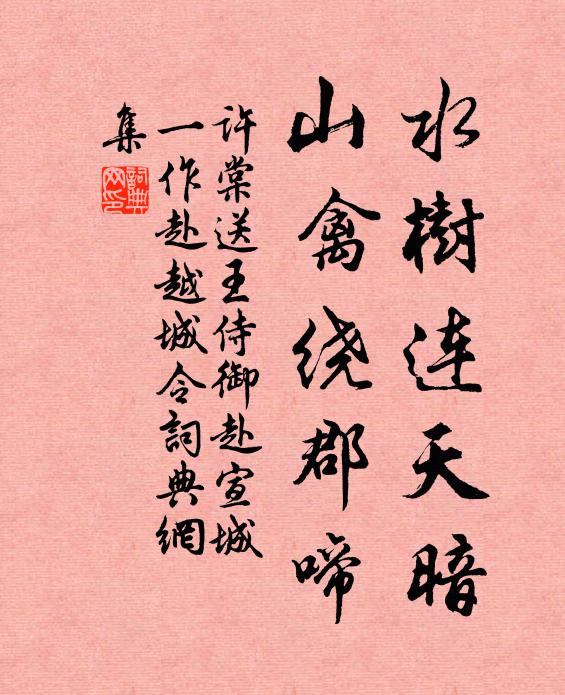 水樹连天暗
山禽绕郡啼
许棠送王侍御赴宣城
一作赴越城令詞典網
集
詞典网印